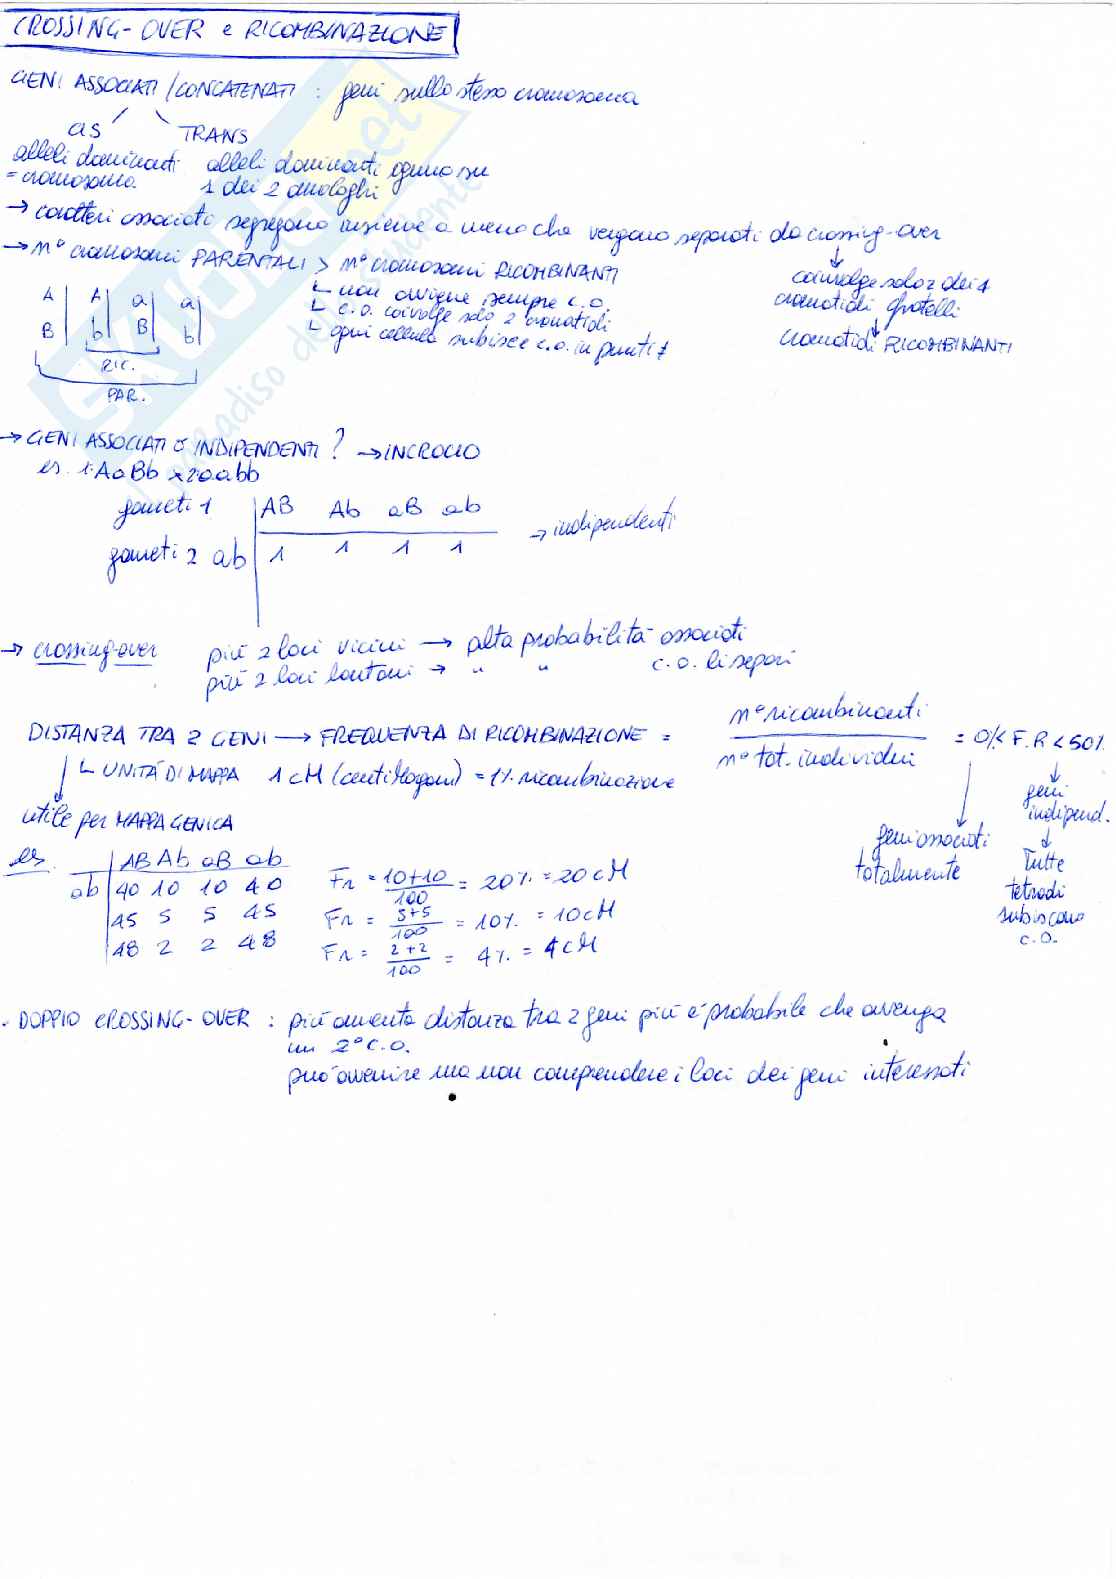 CROSSING-OVER e RICOMBINAZIONE
GENI ASSOCIATI / CONCATENATI : geni sullo stesso cromosoma
CIS TRANS
alleli dominanti alleli dominanti ognuno su
= cromosoma. 1 dei 2 omologhi
→ caratteri associati segregano insieme a meno che vengano separati da crossing-over
→ n° cromosomi PARENTALI > n° cromosomi RICOMBINANTI
coinvolge solo 2 dei 4
cromatidi fratelli
cromatidi RICOMBINANTI
└ non avviene sempre c.o.
└ c.o. coivolge solo 2 cromatidi
└ ogni cellula subisce c.o. in punti ≠
A A a a
B b B b
RIC.
PAR.
→ GENI ASSOCIATI o INDIPENDENTI ? → INCROCIO
es. 1:AaBb x 2:aabb
gameti 1 AB Ab aB ab
gameti 2 ab 1 1 1 1 → indipendenti
→ crossing-over più 2 loci vicini → alta probabilità associati
più 2 loci lontani → " " c.o. li separi
DISTANZA TRA 2 GENI → FREQUENZA DI RICOMBINAZIONE = n° ricombinanti / n° tot. individui = 0% < F.R < 50%
└ UNITÀ DI MAPPA 1 cM (centiMorgan) = 1% ricombinazione
utile per MAPPA GENICA
geni associati
totalmente
geni
indipend.
Tutte
tetradi
subiscono
c.o.
es. AB Ab aB ab
ab 40 10 10 40 Fr = 10+10 / 100 = 20% = 20 cM
45 5 5 45 Fr = 5+5 / 100 = 10% = 10 cM
48 2 2 48 Fr = 2+2 / 100 = 4% = 4 cM
. DOPPIO CROSSING-OVER : più aumenta distanza tra 2 geni più è probabile che avvenga
un 2° c.o.
può avvenire ma non comprendere i loci dei geni interessati